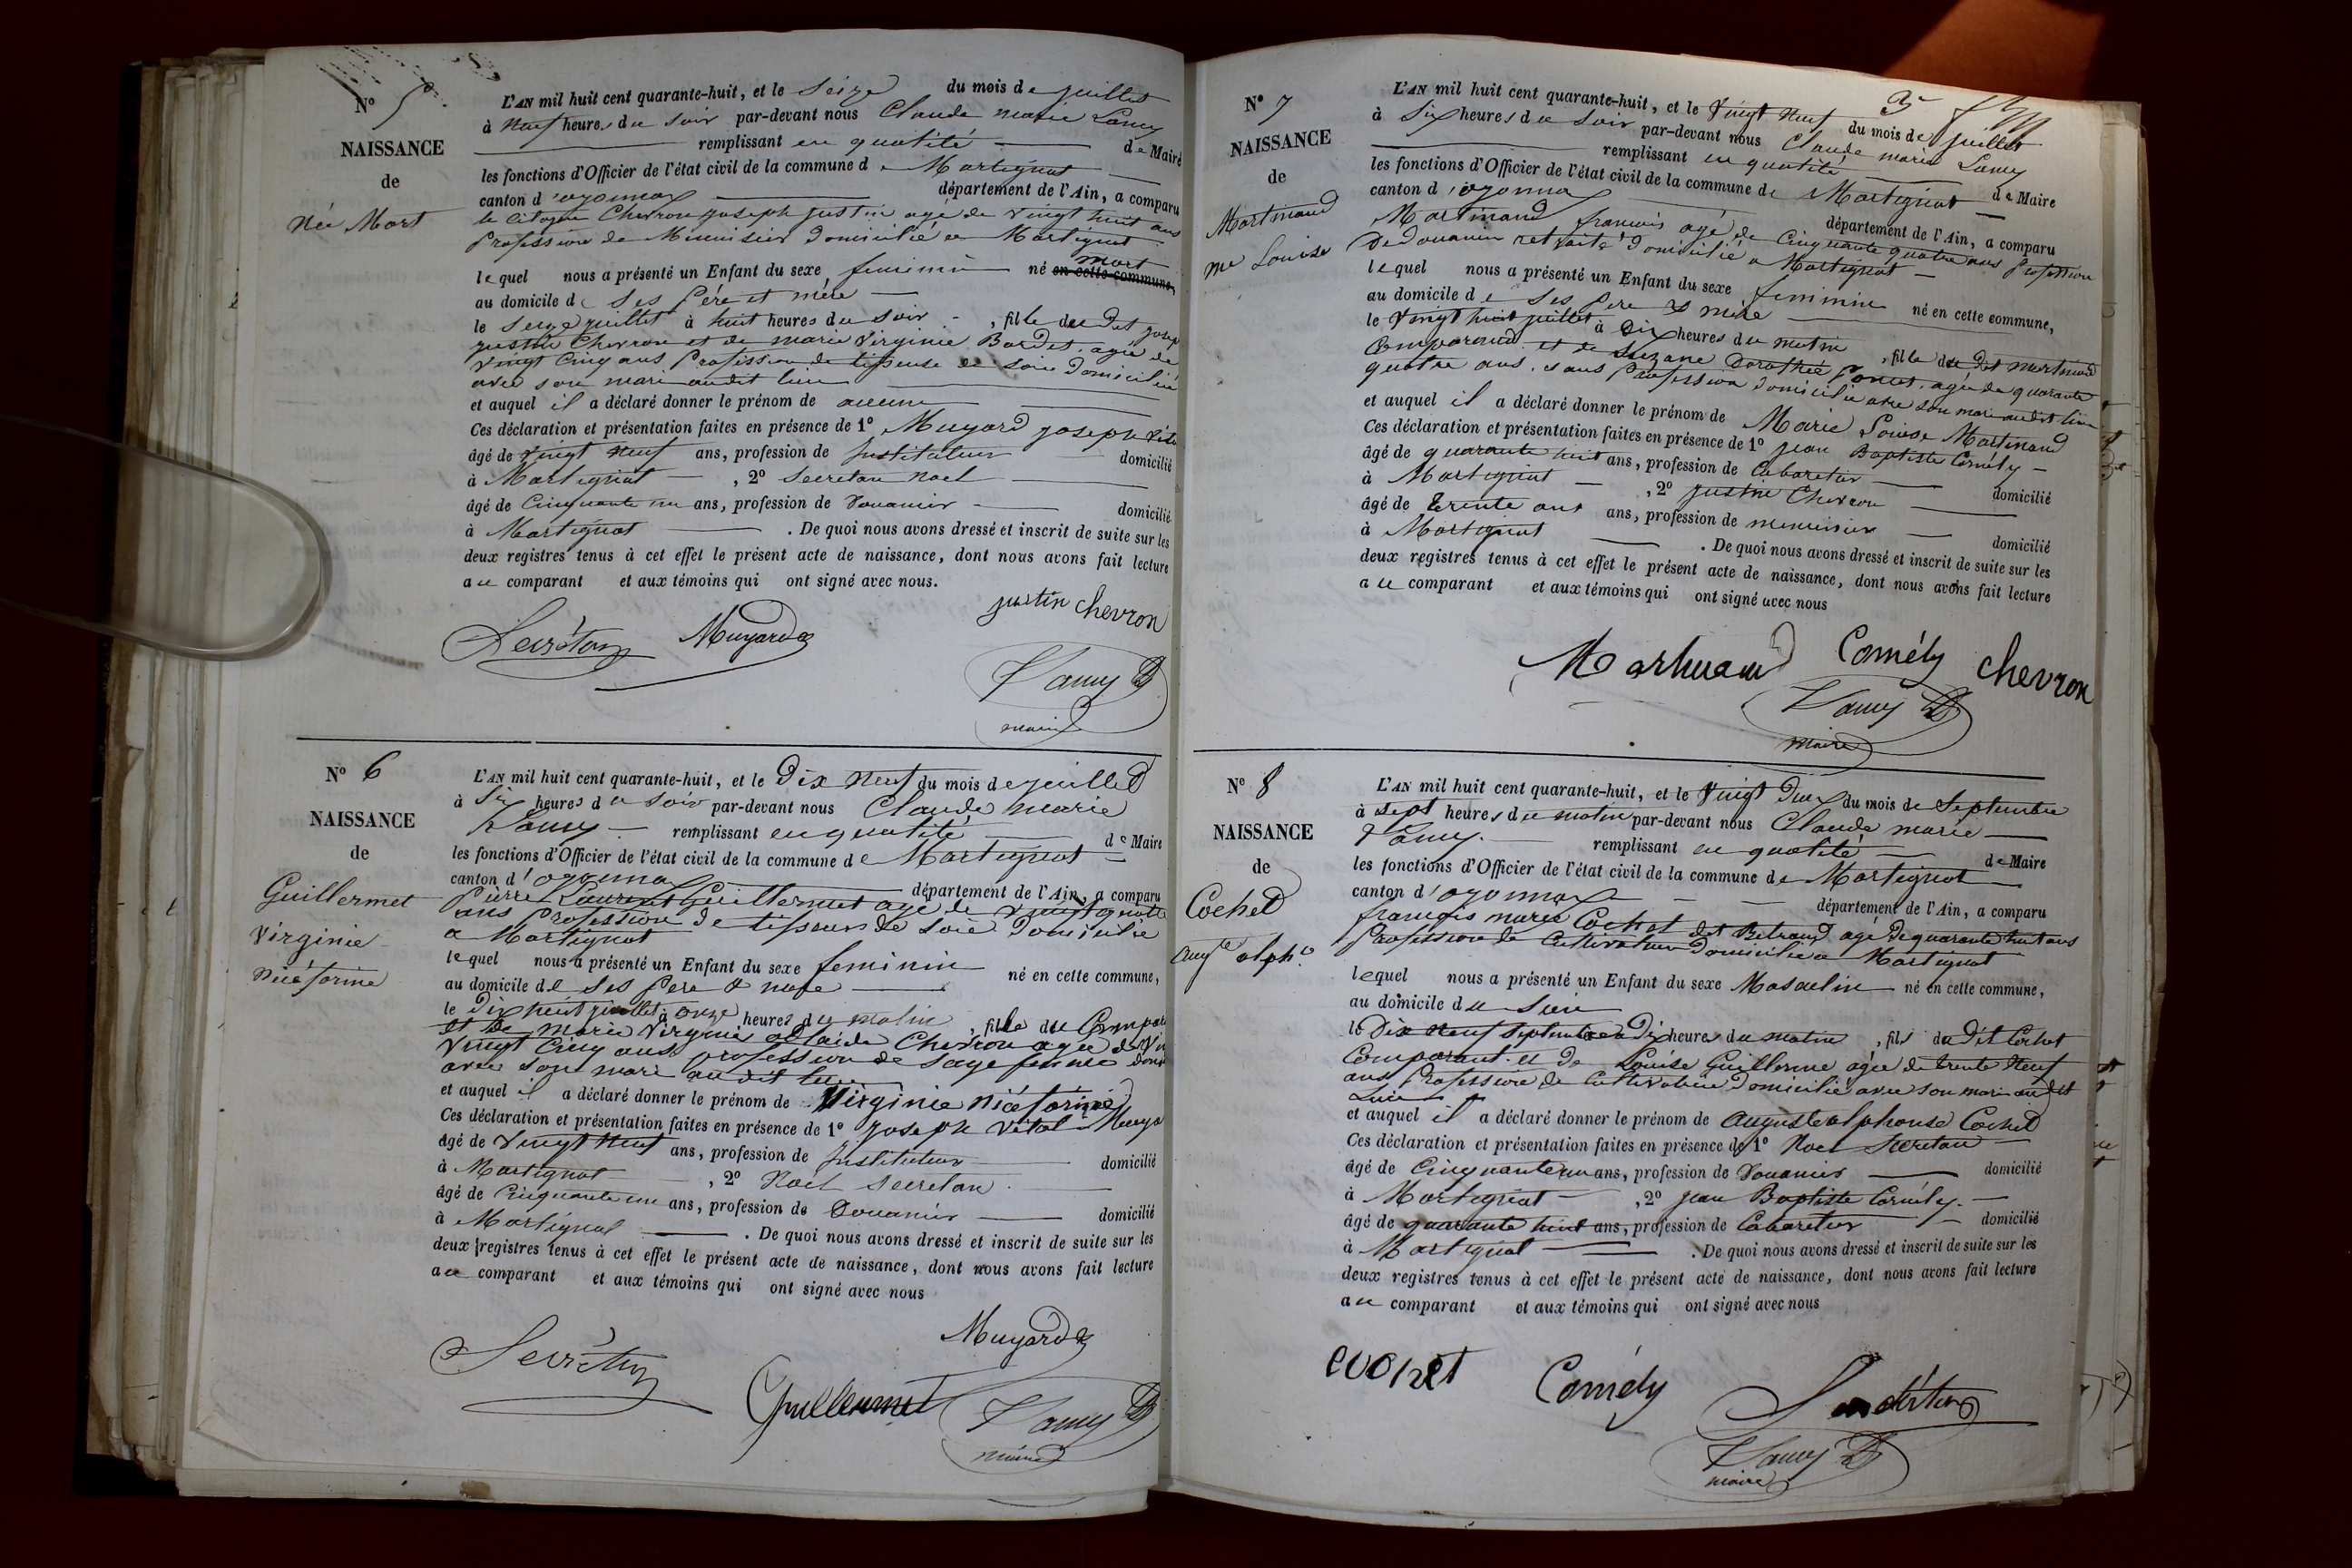 N° 5
NAISSANCE
de
Née Mort
L'AN mil huit cent quarante-huit, et le seize du mois de juillet
à neuf heures du soir par-devant nous Claude marie Lamy
remplissant en qualité de Maire
les fonctions d'Officier de l'état civil de la commune de Martignat
canton d'oyonnax département de l'Ain, a comparu
le Citoyen Chevron joseph justin agé de vingt huit ans
Profession de Menuisier domicilié a Martignat
mort
lequel nous a présenté un Enfant du sexe feminin né en cette commune,
au domicile de ses Père et mère
le seize juillet à huit heures du soir, fille du dit josep
justin Chevron et de marie Virginie Bardet, agée de
vingt cinq ans Profession de tisseuse de soie domiciliée
avec son mari audit lieu
et auquel il a déclaré donner le prénom de aucun
Ces déclaration et présentation faites en présence de 1° Muyard joseph Vital
âgé de vingt neuf ans, profession de Instituteur domicilié
à Martignat, 2° Secretan Noel
âgé de Cinquante un ans, profession de Douanier domicilié
à Martignat. De quoi nous avons dressé et inscrit de suite sur les
deux registres tenus à cet effet le présent acte de naissance, dont nous avons fait lecture
au comparant et aux témoins qui ont signé avec nous.
justin chevron
Secrétan Muyard
Lamy
maire
N° 6
NAISSANCE
de
Guillermet
Virginie
Nicéforine
L'AN mil huit cent quarante-huit, et le Dix Neuf du mois de juillet
à Six heures du soir par-devant nous Claude marie
Lamy remplissant en qualité de Maire
les fonctions d'Officier de l'état civil de la commune de Martignat
canton d'oyonnax département de l'Ain, a comparu
Pierre Laurent Guillermet agé de vingt quatre
ans Profession de tisseur de soie domicilié
a Martignat
lequel nous a présenté un Enfant du sexe feminin né en cette commune,
au domicile de ses Père & mère
le Dix huit juillet à onze heures du matin, fille du Compar
et de marie Virginie adlaide Chevron agée de
Vingt Cinq ans profession de Sage femme
avec son mari au dit lieu
et auquel il a déclaré donner le prénom de Virginie Nicéforine
Ces déclaration et présentation faites en présence de 1° joseph Vital Muya
âgé de vingt neuf ans, profession de Instituteur domicilié
à Martignat, 2° Noel Secretan
âgé de Cinquante un ans, profession de Douanier domicilié
à Martignat. De quoi nous avons dressé et inscrit de suite sur les
deux registres tenus à cet effet le présent acte de naissance, dont nous avons fait lecture
au comparant et aux témoins qui ont signé avec nous
Muyard
Secrétan
Guillermet Lamy
maire
3
N° 7
NAISSANCE
de
Martinand
me Louise
L'AN mil huit cent quarante-huit, et le Vingt Neuf du mois de juillet
à Six heures du soir par-devant nous Claude marie Lamy
remplissant en qualité de Maire
les fonctions d'Officier de l'état civil de la commune de Martignat
canton d'oyonnax département de l'Ain, a comparu
Martinand francois agé de Cinquante quatre ans profession
De douanier retraité domicilié a Martignat
lequel nous a présenté un Enfant du sexe feminin né en cette commune,
au domicile de ses Pere & mère
le Vingt huit juillet à Dix heures du matin, fille du dit martinand
Comparant et de Suzane Dorothée Poncet, agée de quarante
quatre ans, sans Profession domiciliée avec son mari audit lieu
et auquel il a déclaré donner le prénom de Marie Louise Martinand
Ces déclaration et présentation faites en présence de 1° jean Baptiste Comély
âgé de quarante huit ans, profession de Cabaretier domicilié
à Martignat, 2° justin Chevron
âgé de trente ans ans, profession de menuisier domicilié
à Martignat. De quoi nous avons dressé et inscrit de suite sur les
deux registres tenus à cet effet le présent acte de naissance, dont nous avons fait lecture
au comparant et aux témoins qui ont signé avec nous
Martinand Comély chevron
Lamy
maire
N° 8
NAISSANCE
de
Cochet
Augte alphe
L'AN mil huit cent quarante-huit, et le Vingt Deux du mois de Septembre
à sept heures du matin par-devant nous Claude marie
Lamy remplissant en qualité de Maire
les fonctions d'Officier de l'état civil de la commune de Martignat
canton d'oyonnax département de l'Ain, a comparu
françois marie Cochet dit Betrand agé de quarante huit ans
Profession de Cultivateur domicilié a Martignat
lequel nous a présenté un Enfant du sexe Masculin né en cette commune,
au domicile du sien
le Dix Neuf Septembre à Dix heures du matin, fils du Dit Cochet
Comparant et de Louise Guillerme agée de trente Neuf
ans Profession de Cultivatrice domiciliée avec son mari audit
Lieu
et auquel il a déclaré donner le prénom de auguste alphonse Cochet
Ces déclaration et présentation faites en présence de 1° Noel Secretan
âgé de Cinquante un ans, profession de Douanier domicilié
à Martignat, 2° jean Baptiste Comély
âgé de quarante huit ans, profession de Cabaretier domicilié
à Martignat. De quoi nous avons dressé et inscrit de suite sur les
deux registres tenus à cet effet le présent acte de naissance, dont nous avons fait lecture
au comparant et aux témoins qui ont signé avec nous
cochet Comély Secrétan
Lamy
maire